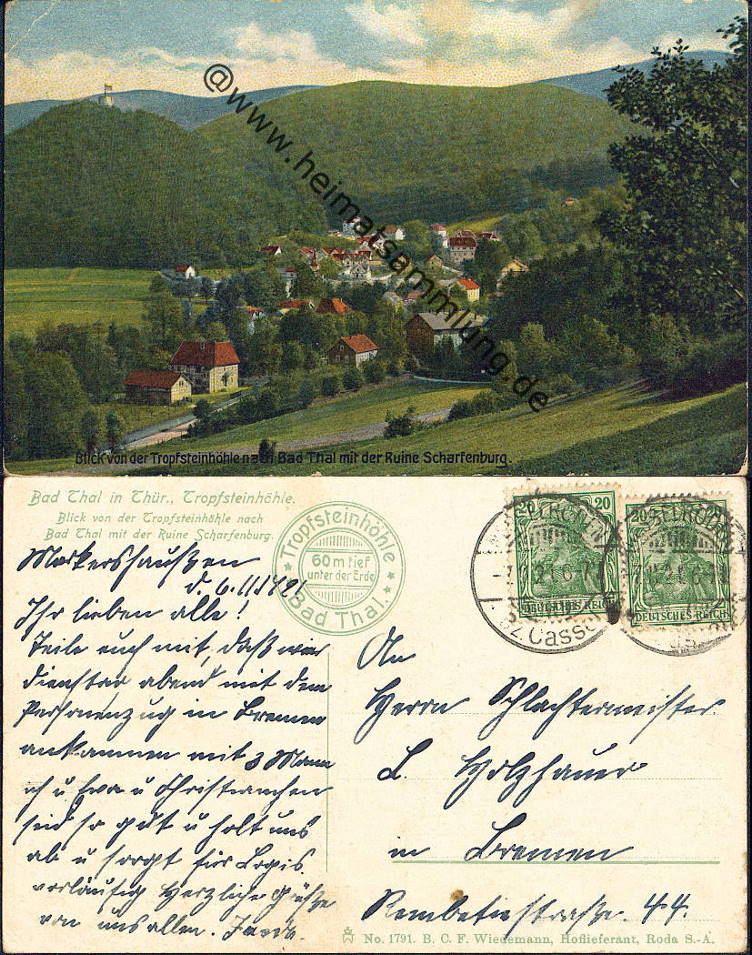 @www.heimatsammlung.de
Blick von der Tropfsteinhöhle nach Bad Thal mit der Ruine Scharfenburg.
Bad Thal in Thür., Tropfsteinhöhle.
Blick von der Tropfsteinhöhle nach
Bad Thal mit der Ruine Scharfenburg.
Tropfsteinhöhle
60 m tief
unter der Erde
Bad Thal.
20
DEUTSCHES REICH
20
DEUTSCHES REICH
Bz. Cassel
Markershaußen
d. 6.
Ihr lieben alle!
Teile euch mit, daß wir
dienstag abend mit dem
Personenzug in Bremen
ankommen mit 3 Mann
ich u Eva u Christianchen
seid so gut u holt uns
ab u sorgt für Logis.
vorläufig Herzliche Grüße
von uns allen.
An
Herrn Schlachtermeister
L. Holzhauer
in Bremen
straße 44.
No. 1791. B. C. F. Wiedemann, Hoflieferant, Roda S.-A.